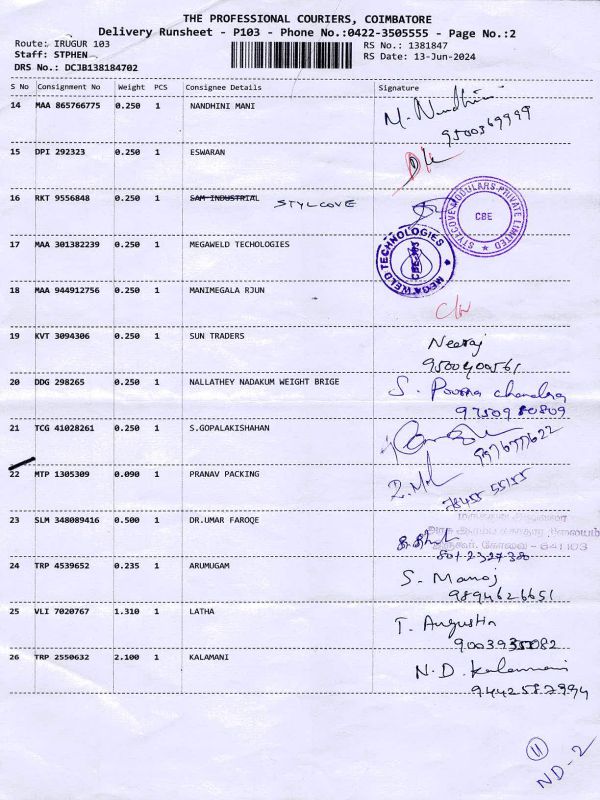 THE PROFESSIONAL COURIERS, COIMBATORE
Delivery Runsheet - P103 - Phone No.:0422-3505555 - Page No.:2
Route: IRUGUR 103
RS No.: 1381847
Staff: STPHEN
RS Date: 13-Jun-2024
DRS No.: DCJB138184702
S No Consignment No Weight PCS Consignee Details Signature
14 MAA 865766775 0.250 1 NANDHINI MANI M. Nandhini
9500369999
15 DPI 292323 0.250 1 ESWARAN
16 RKT 9556848 0.250 1 SAM INDUSTRIAL STYLCOVE
STYLCOVE MODULARS PRIVATE LIMITED
CBE
17 MAA 301382239 0.250 1 MEGAWELD TECHOLOGIES
MEGAWELD TECHNOLOGIES
18 MAA 944912756 0.250 1 MANIMEGALA RJUN
19 KVT 3094306 0.250 1 SUN TRADERS Neeraj
9500400561
20 DDG 298265 0.250 1 NALLATHEY NADAKUM WEIGHT BRIGE S. Poorna chandra
21 TCG 41028261 0.250 1 S.GOPALAKISHAHAN
22 MTP 1305309 0.090 1 PRANAV PACKING
78455 55155
23 SLM 348089416 0.500 1 DR.UMAR FAROQE
8012327380
24 TRP 4539652 0.235 1 ARUMUGAM S. Manoj
9894626651
25 VLI 7020767 1.310 1 LATHA T. Augustin
26 TRP 2550632 2.100 1 KALAMANI N.D. Kalamani
9442587994
11
ND-2